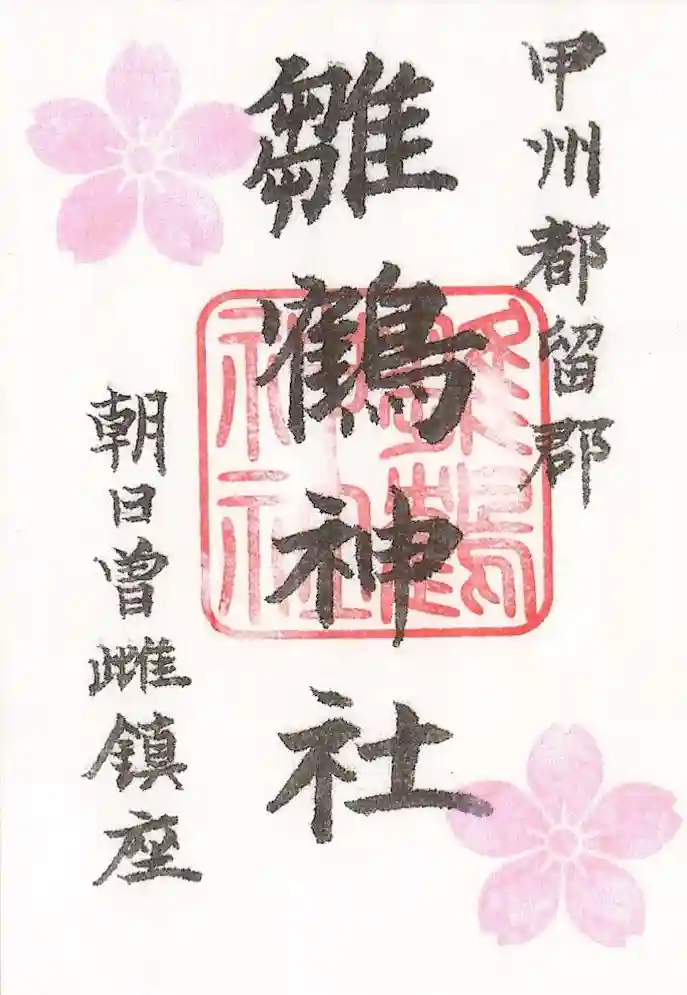 甲州都留郡
雛鶴神社
朝日曽雌鎮座
雛鶴神社